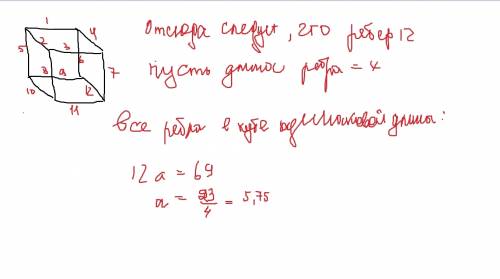 1
2 3 4
5 6 7
8 9
10 12
11
Отсюда следует, что ребер 12
Пусть длина ребра = x
Все ребра в кубе одинаковой длины:
12a = 69
a = 23/4 = 5,75